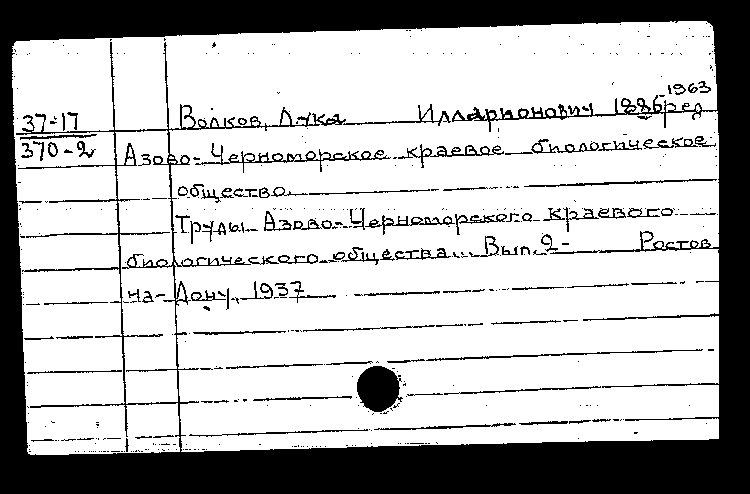 1963
37-17 Волков, Лука Илларионович 1886 ред
370-2 Азово-Черноморское краевое биологическое
общество.
Труды Азово-Черноморского краевого
биологического общества... Вып. 2- Ростов
на-Дону, 1937